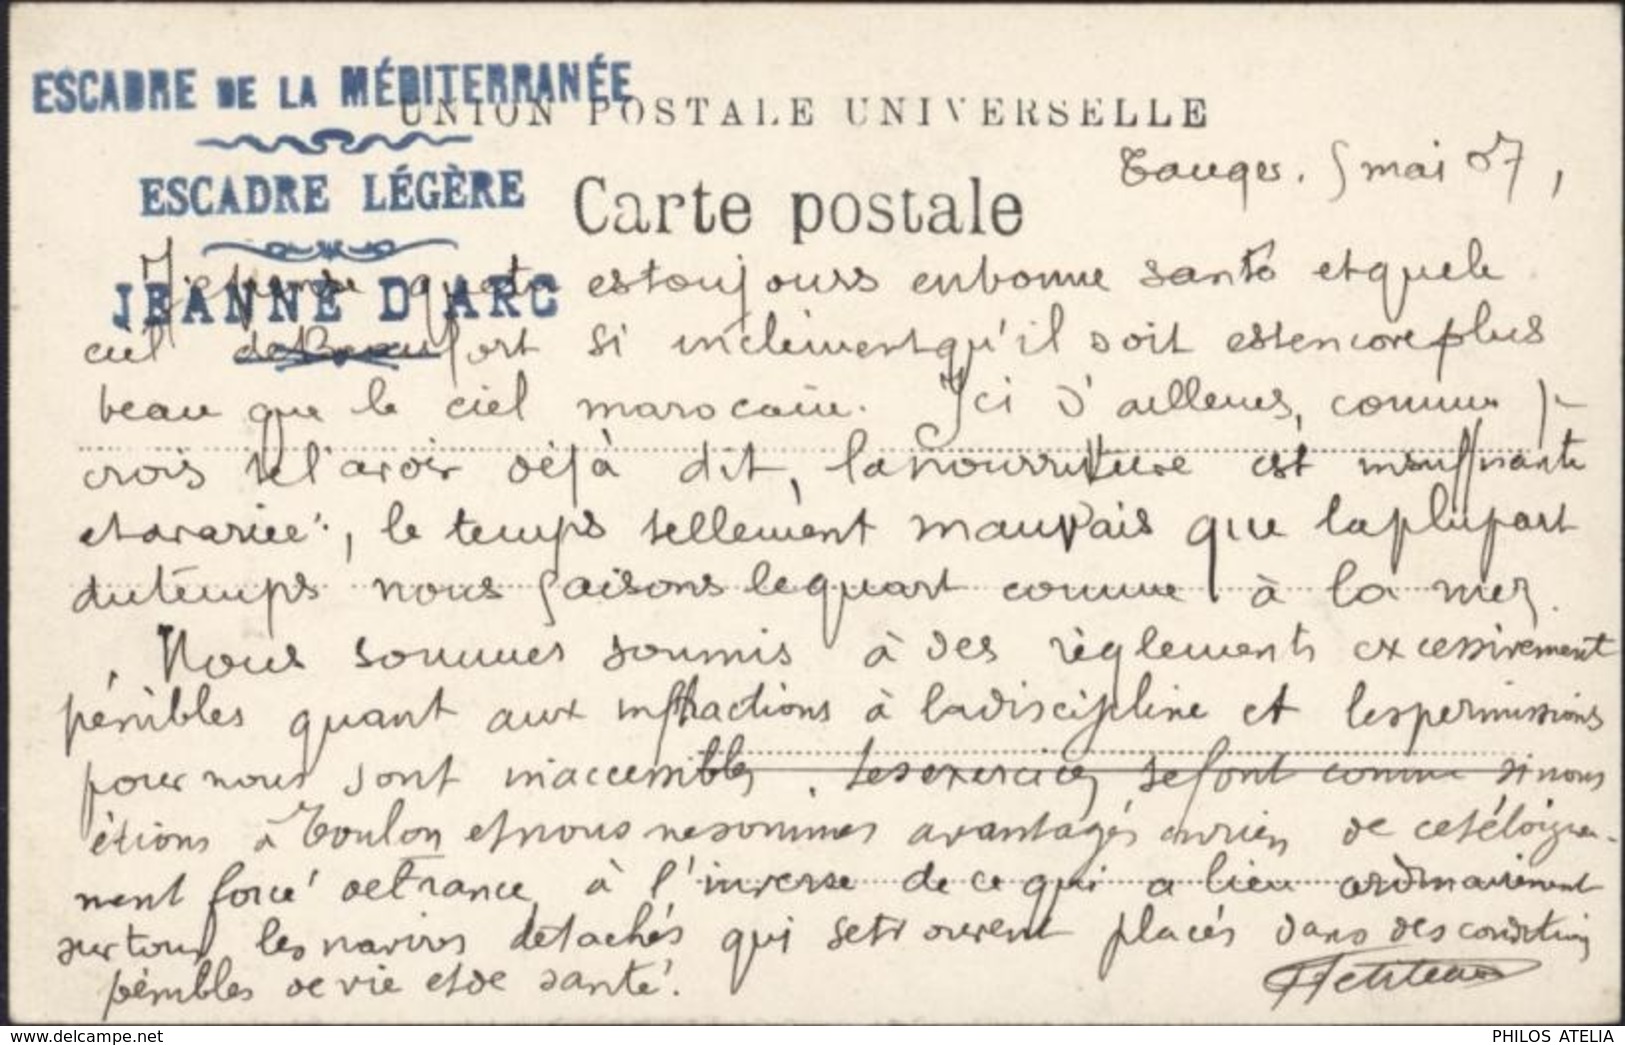 ESCADRE DE LA MÉDITERRANÉE
UNION POSTALE UNIVERSELLE
ESCADRE LÉGÈRE
Carte postale
JEANNE D'ARC
Tanger. 5 mai 07,
Je pense que tu es toujours en bonne santé et que le
ciel de Beaufort si inclément qu'il soit est encore plus
beau que le ciel marocain. Ici d'ailleurs, comme je
crois te l'avoir déjà dit, la nourriture est insuffisante
et avariée, le temps tellement mauvais que la plupart
du temps nous faisons le quart comme à la mer.
Nous sommes soumis à des règlements excessivement
pénibles quant aux infractions à la discipline et les permissions
pour nous sont inaccessibles. Les exercices se font comme si nous
étions à Toulon et nous ne sommes avantagés en rien de cet éloigne-
ment forcé de France, à l'inverse de ce qui a lieu ordinairement
sur tous les navires détachés qui se trouvent placés dans des conditions
pénibles de vie et de santé.
delcampe.net
PHILOS ATELIA